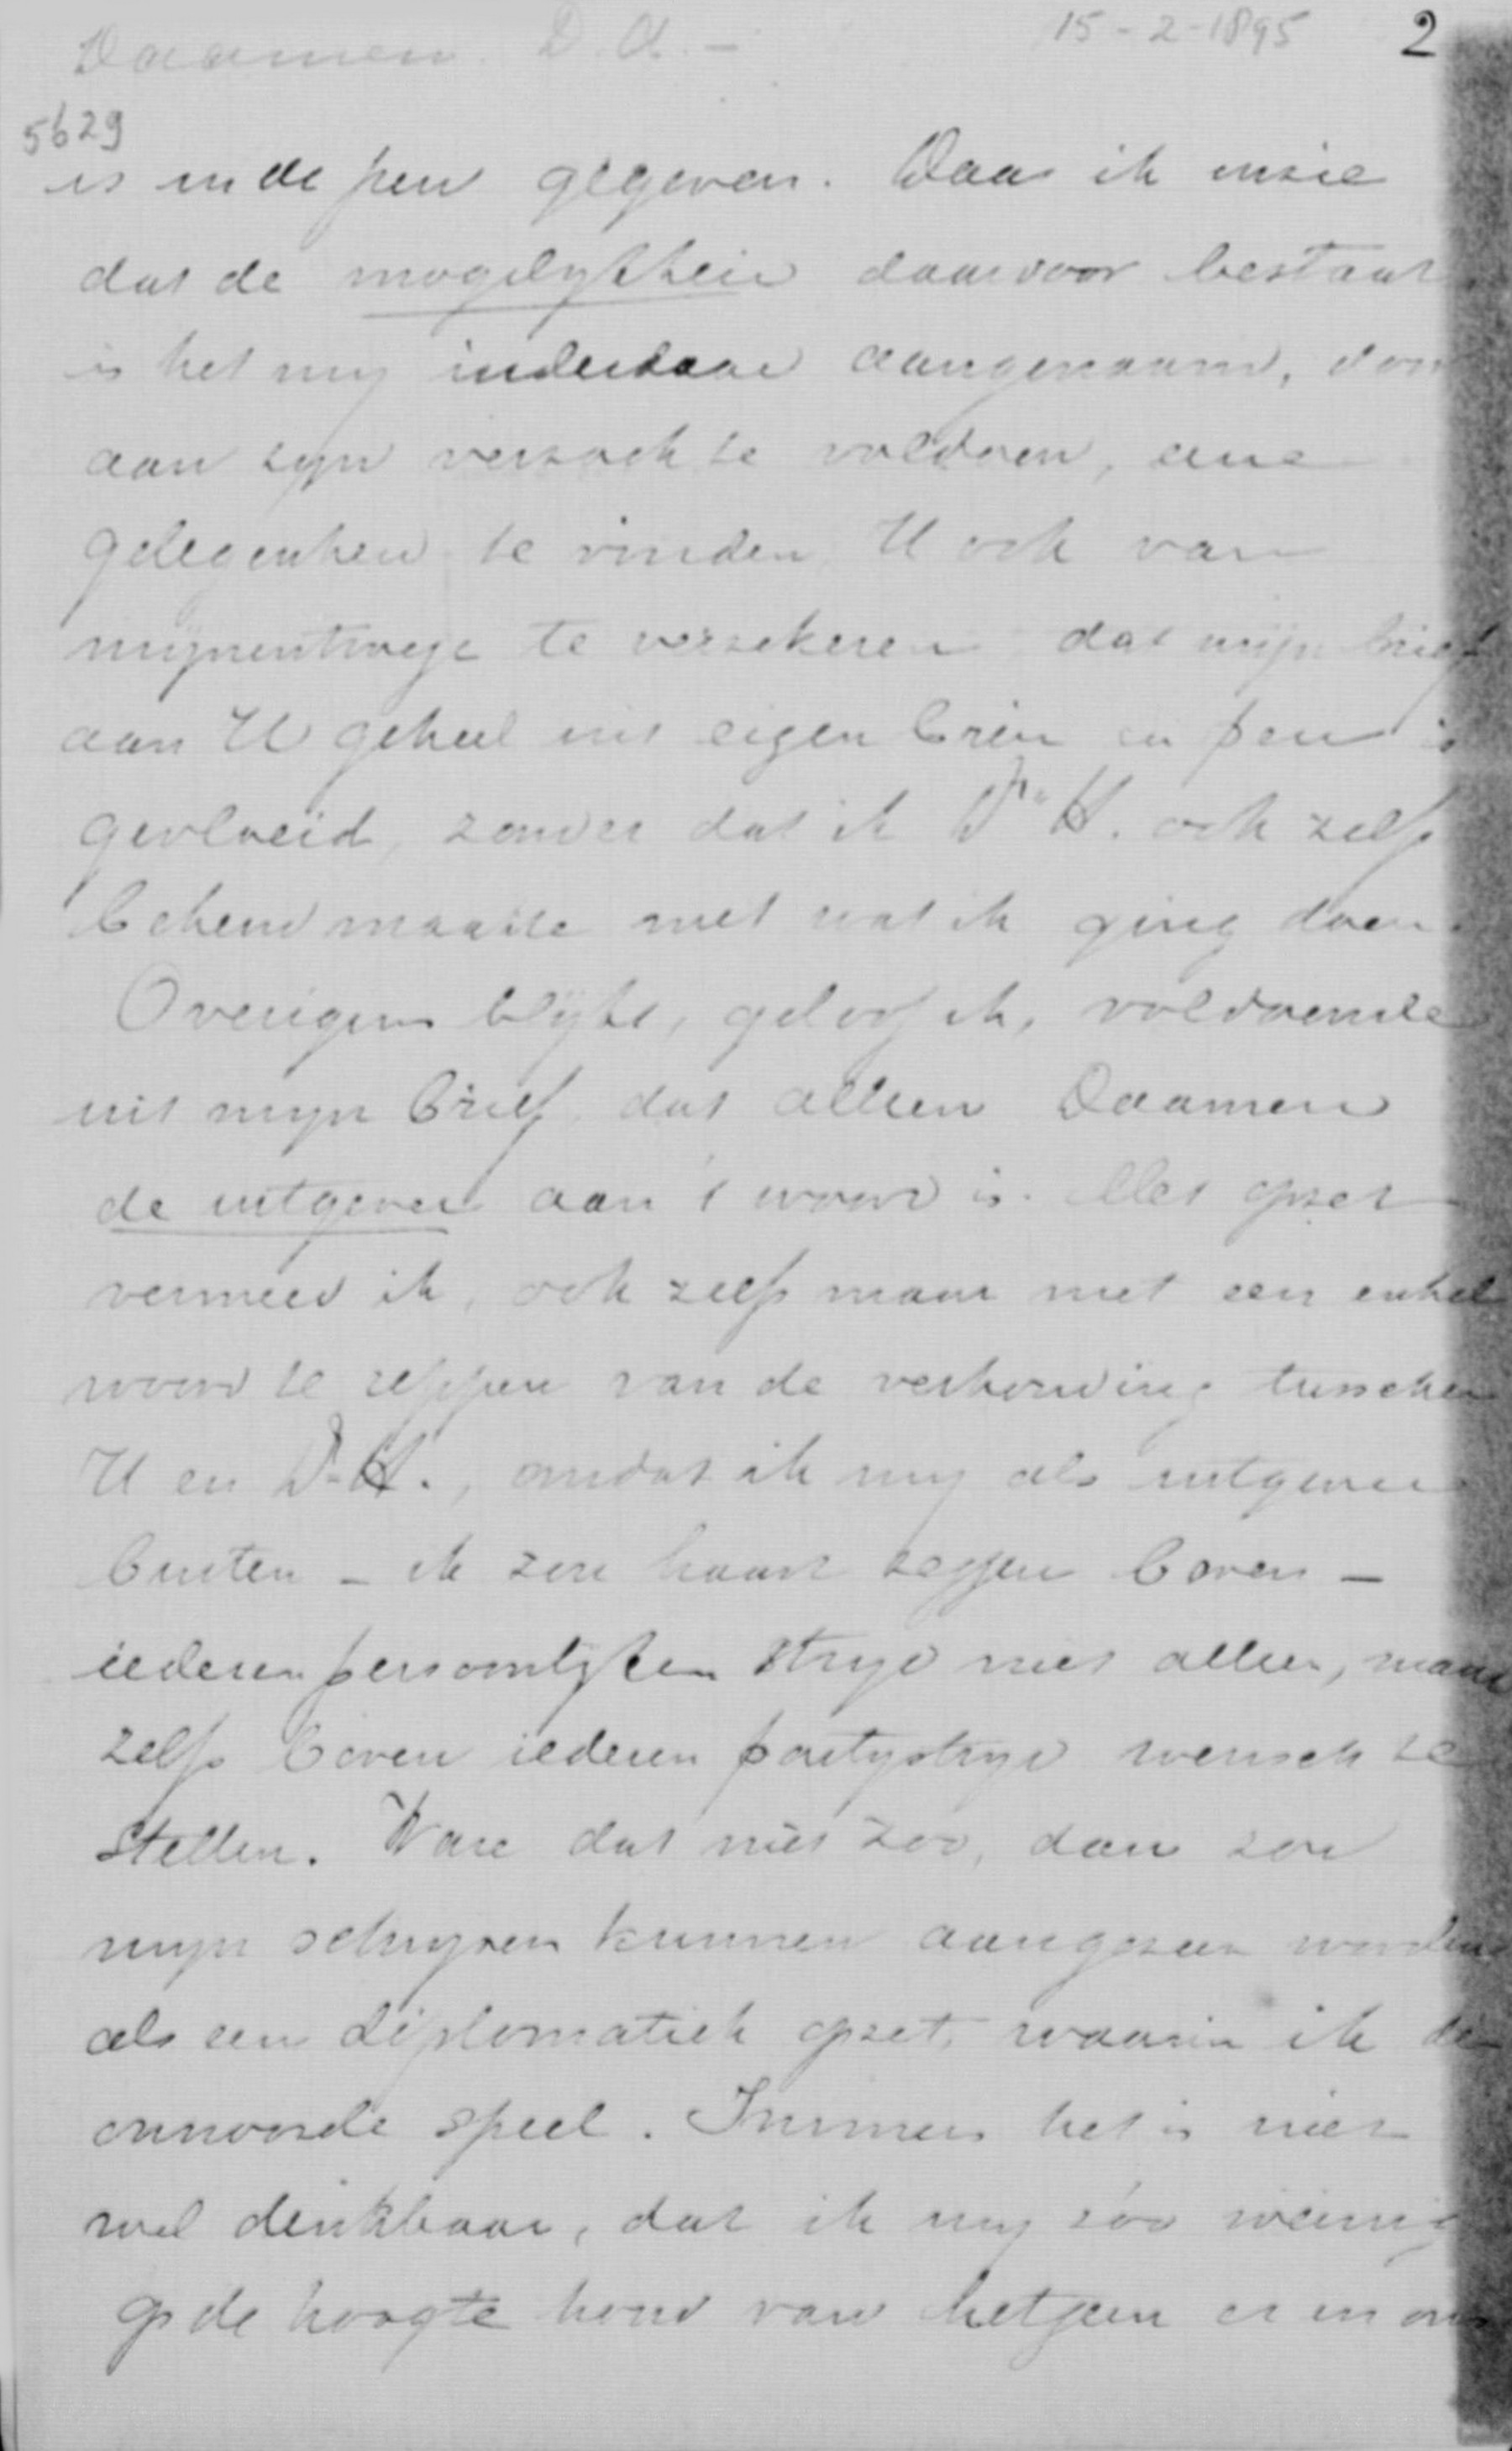 Daamen D.A. – 15-2-1895 2
5629
is in de pen gegeven. Daar ik inzie
dat de mogelykheid daarvoor bestaat,
is het my inderdaad aangenaam, door
aan zyn verzoek te voldoen, eene
gelegenheid te vinden U ook van
mijnentwege te verzekeren dat mijn brief
aan U geheel uit eigen brein en pen is
gevloeid, zonder dat ik Dr. H. ook zelfs
bekend maakte met wat ik ging doen.
Overigens blijkt, geloof ik, voldoende
uit myn brief dat alleen Daamen
de uitgever aan 't woord is. Met opzet
vermeed ik, ook zelfs maar met een enkel
woord te reppen van de verhouding tusschen
U en Dr H., omdat ik my als uitgever
buiten – ik zou haast zeggen boven –
iederen persoonlyken stryd niet alleen, maar
zelfs boven iederen partystryd wensch te
stellen. Ware dat niet zoo, dan zou
myn schryven kunnen aangezien worden
als een diplomatiek opzet, waarin ik de
onnoozele speel. Immers het is niet
wel denkbaar, dat ik my zóo weinig
op de hoogte houd van hetgeen er in ons